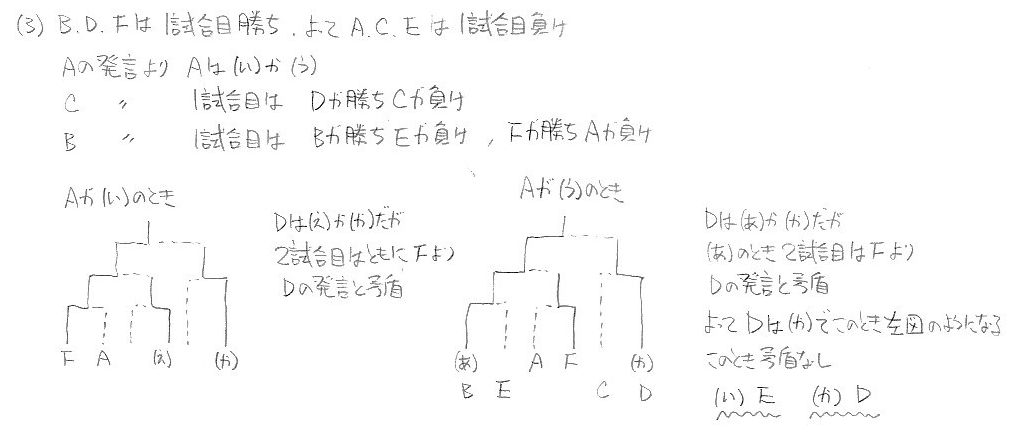 (3) B.D.Fは1試合目勝ち.よってA.C.Eは1試合目負け
Aの発言より Aは(い)か(う)
C 〃 1試合目は Dが勝ちCが負け
B 〃 1試合目は Bが勝ちEが負け , Fが勝ちAが負け
Aが(い)のとき
Dは(え)か(か)だが
2試合目はともにFより
Dの発言と矛盾
F A (え) (か)
Aが(う)のとき
(あ) A F (か)
B E C D
Dは(あ)か(か)だが
(あ)のとき2試合目はFより
Dの発言と矛盾
よってDは(か)でこのとき左図のようになる
このとき矛盾なし
(い) E (か) D